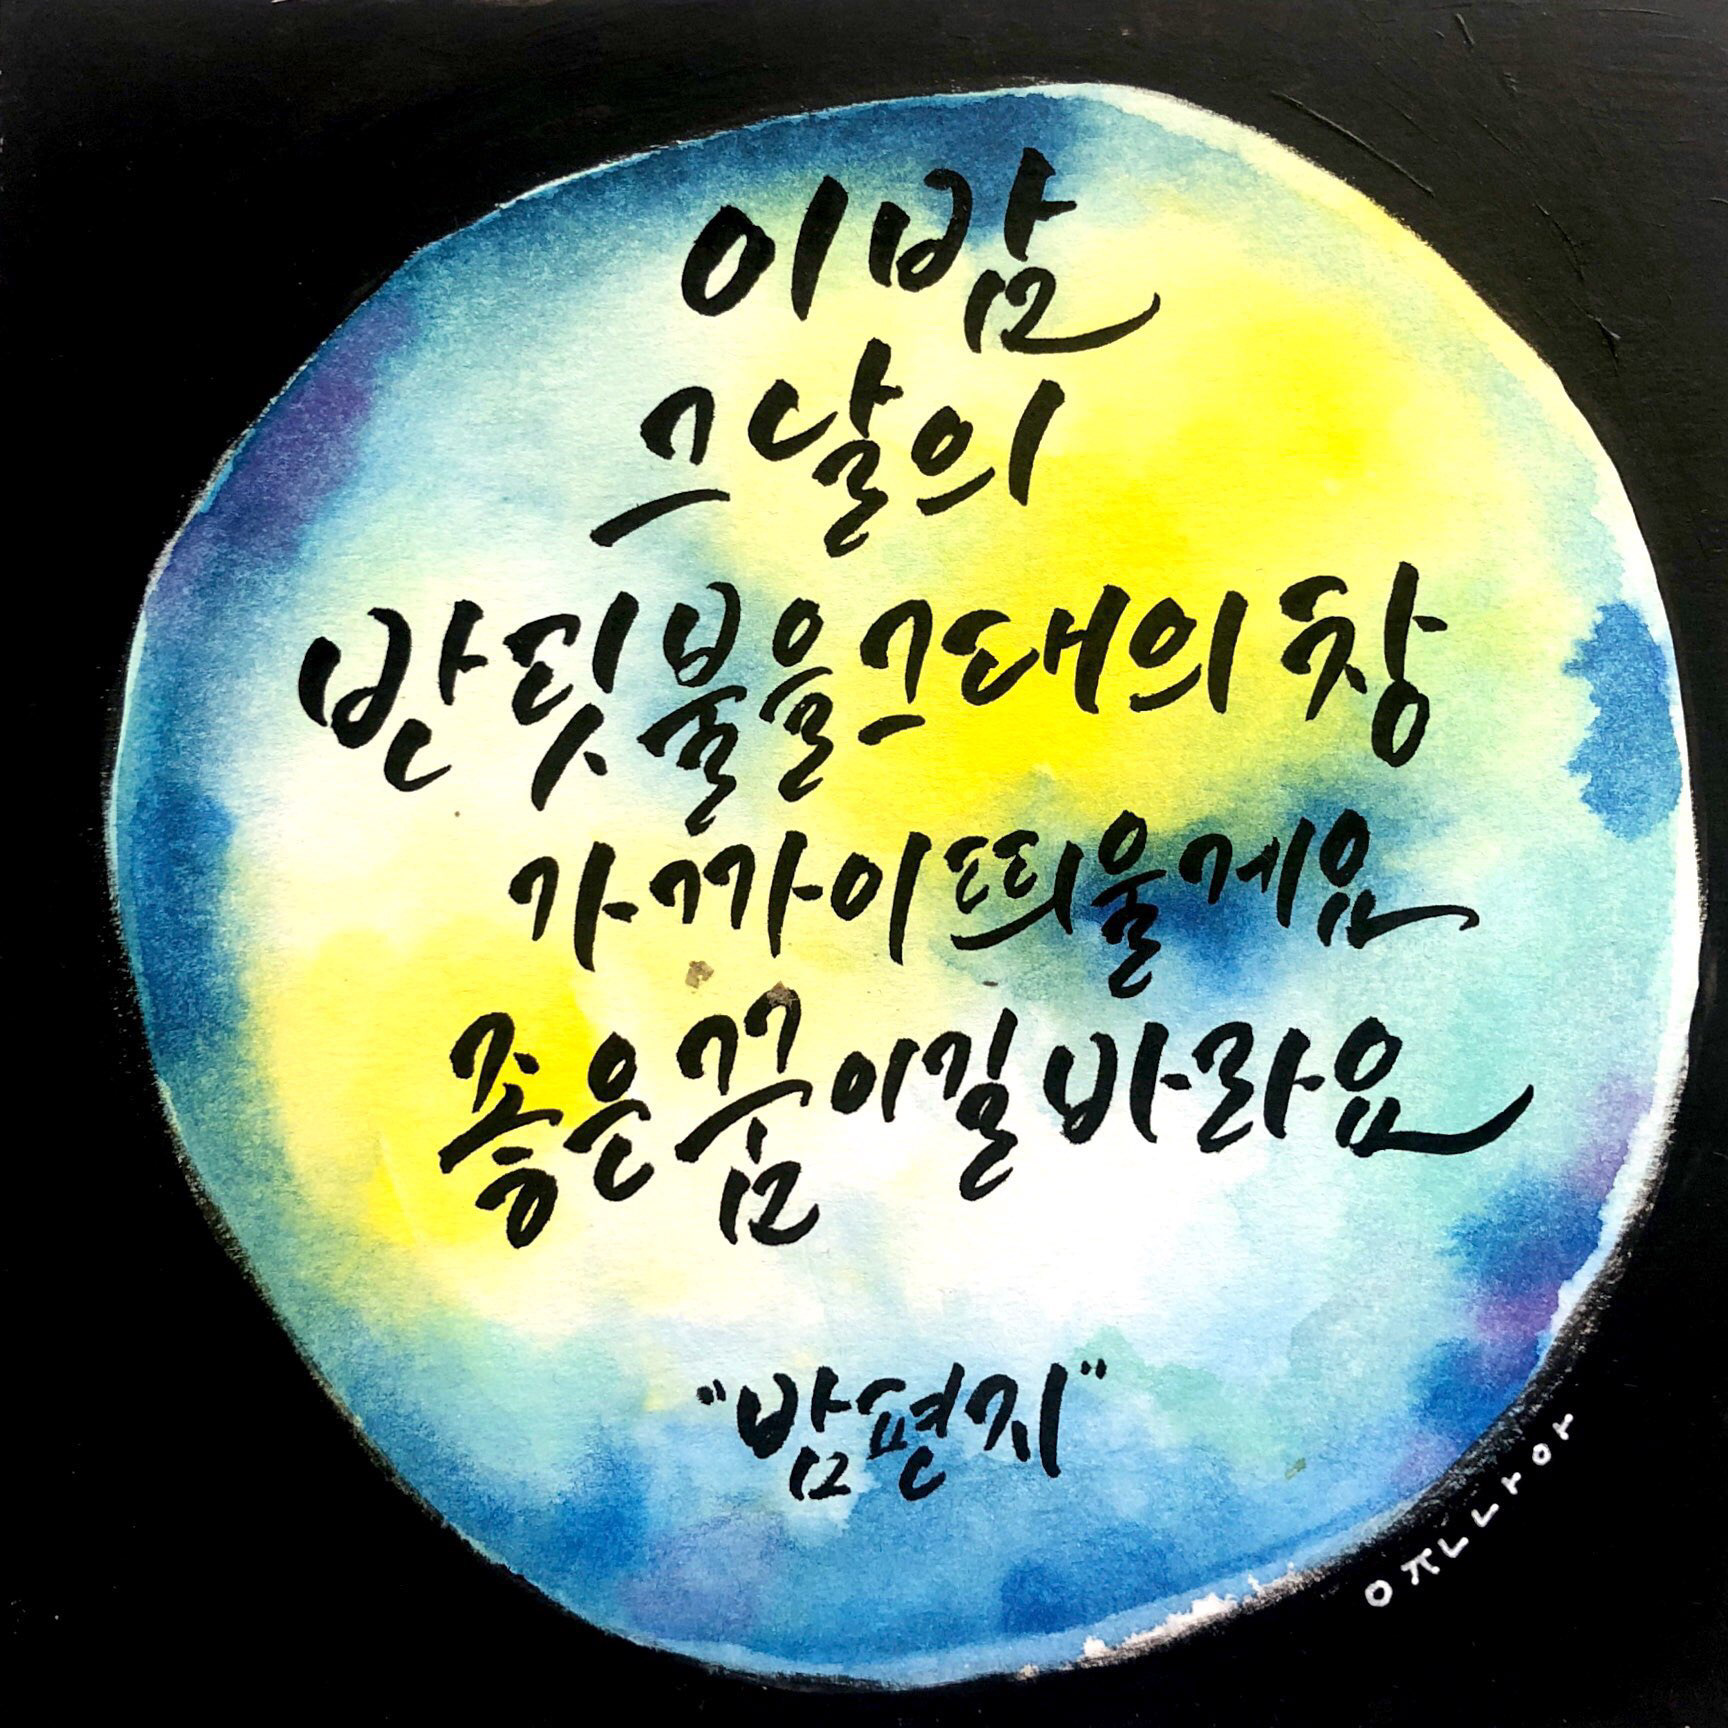 이 밤
그날의
반딧불을 그대의 창
가까이 띄울게요
좋은 꿈 이길 바라요
"밤편지"
ㅇㅠㄴㄴㅏㅇㅏ